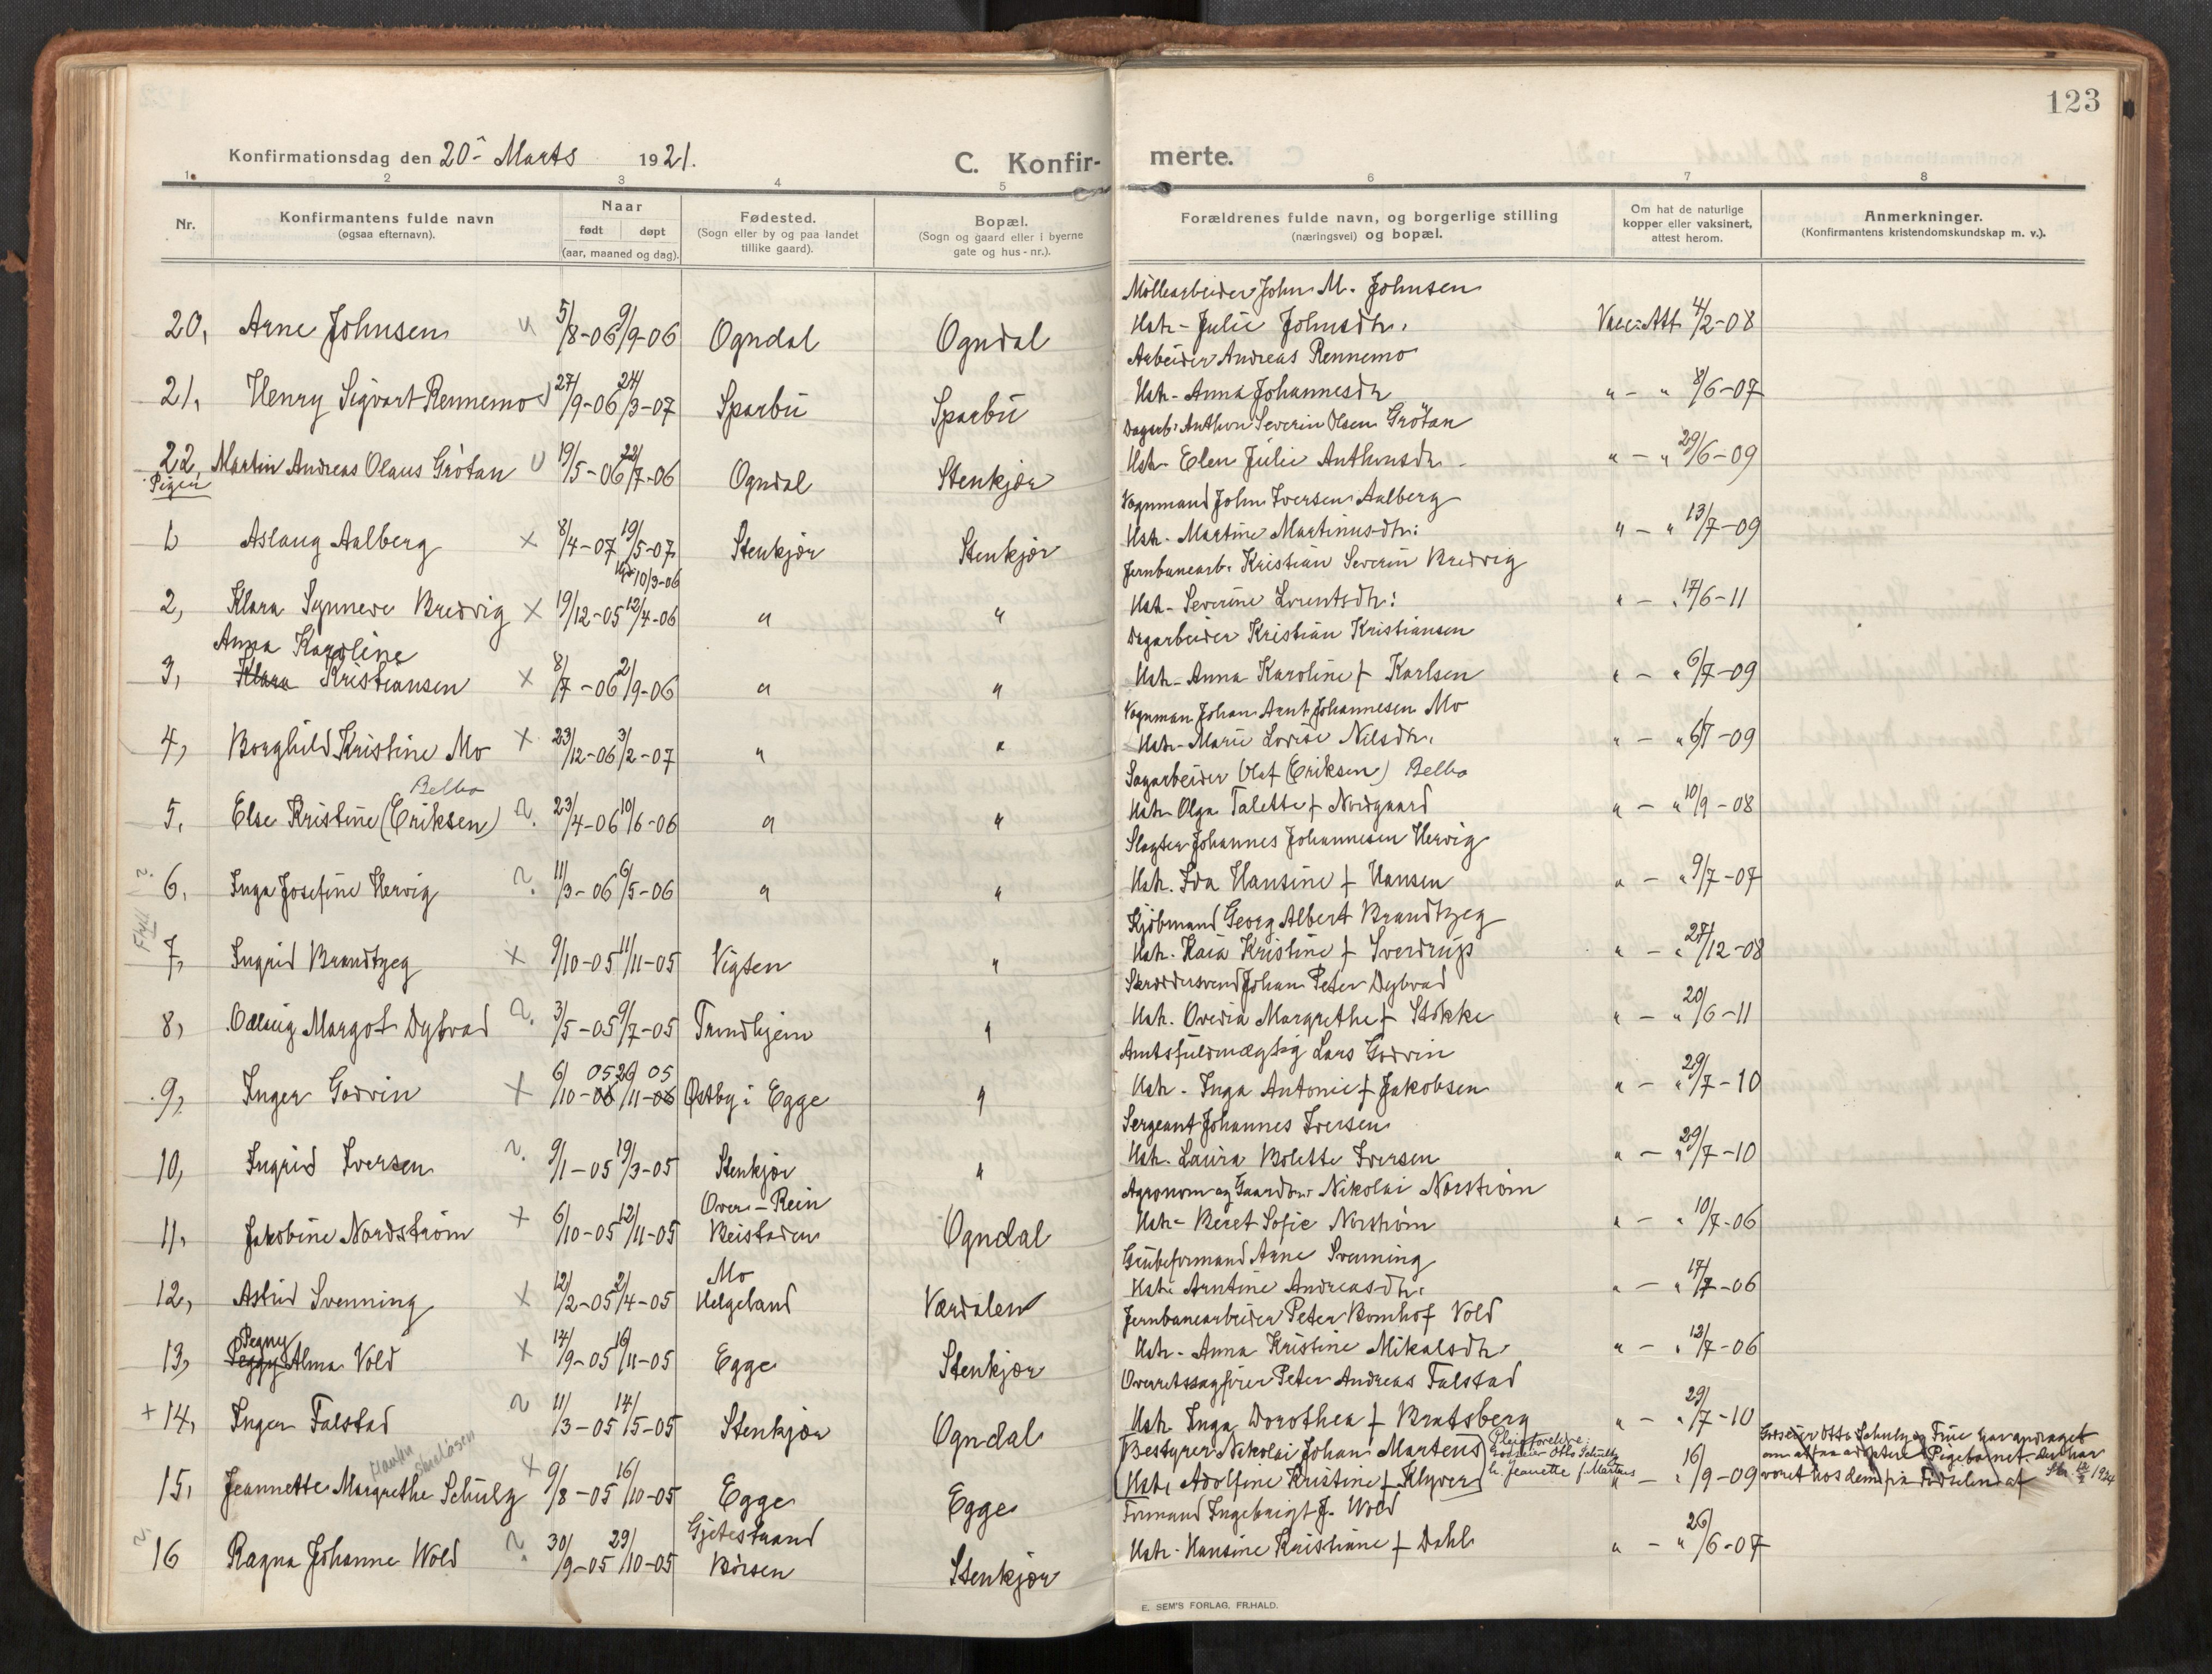 123
Konfirmationsdag den 20- Marts 1921.
C. Konfirmerte.
1. 2 3 4 5 6 7 8
Nr.
Konfirmantens fulde navn
(ogsaa efternavn).
Naar
født døpt
(aar, maaned og dag).
Fødested.
(Sogn eller by og paa landet
tillike gaard).
Bopæl.
(Sogn og gaard eller i byerne
gate og hus-nr.).
Forældrenes fulde navn, og borgerlige stilling
(næringsvei) og bopæl.
Om hat de naturlige
kopper eller vaksinert,
attest herom.
Anmerkninger.
(Konfirmantens kristendomskundskap m. v.).
Møllearbeider John M. Johnsen
20, Arne Johnsen 5/8-06 9/9-06 Ogndal Ogndal Hstr- Julie Johnsdtr. Vacc:Att 4/2-08
Arbeider Andreas Rennemo
21, Henry Sigvart Rennemo 27/9-06 24/3-07 Sparbu Sparbu Hstr- Anna Johannesdtr " - " 8/6-07
Dagarb: Anthon Severin Olsen Grötan
22, Martin Andreas Olaus Grötan U 19/5-06 22/7-06 Ogndal Stenkjær Hstr- Elen Julie Anthonsdtr. " - " 29/6-09
Pigen
Vognmand John Iversen Aalberg
1, Aslaug Aalberg x 8/4-07 19/5-07 Stenkjær Stenkjær Hstr. Martine Martinusdtr: " - " 13/7-09
10/3-06
Jernbanearb. Kristian Severin Bredvig
2, Klara Synneve Bredvig x 19/12-05 12/4-06 " " Hstr- Severine Lorentsdtr: " - " 17/6-11
Anna Karoline
Dagarbeider Kristian Kristiansen
3, Klara Kristiansen x 8/7-06 2/9-06 " " Hstr- Anna Karoline f Karlsen " - " 6/7-09
Vognman Johan Arnt Johannesen Mo
4, Borghild Kristine Mo x 23/12-06 3/2-07 " " Hstr- Marie Lovise Nilsdtr. " - " 6/7-09
Belbo
Sagarbeider Olaf (Eriksen) Belbo
5. Else Kristine (Eriksen) 2. 23/4-06 10/6-06 " " Hstr Olga Talette f Nordgaard " - " 10/9-08
Slagter Johannes Johannesen Hervig
6. Inga Josefine Hervig 2. 11/3-06 6/5-06 " " Hstr. Ida Hansine f Hansen " - " 9/7-07
Kjöbmand Georg Albert Brandtzeg
7, Ingrid Brandtzeg x 9/10-05 11/11-05 Vigten " Hstr. Kaia Kristine f Sverdrup " - " 27/12-08
Skræddersvend Johan Peter Dybvad
8, Odlaug Margot Dybvad 2. 3/5-05 9/7-05 Trondhjem " Hstr. Ovedia Margrethe f Stokke " - " 20/6-11
Amtsfuldmægtig Lars Godvin
05 05
9, Inger Godvin x 6/10-06 26/11-06 Østby i Egge " Hstr- Inga Antonie f Jakobsen " - " 29/7-10
Sergeant Johannes Iversen
10, Ingrid Iversen 2. 9/1-05 19/3-05 Stenkjær " Hstr. Laura Bolette Iversen " - " 29/7-10
Over-Rein
Agronom og Gaardbr. Nikolai Norström
11, Jakobine Nordström x 6/10-05 12/11-05 Beistaden Ogndal Hstr- Beret Sofie Norström " - " 10/7-06
Mo
Grubeformand Arne Svenning
12, Astrid Svenning x 12/2-05 2/4-05 Helgeland Værdalen Hstr. Arntine Andreasdtr. " - " 17/7-06
Pegny
Jernbanearbeider Peter Bomhof Vold
13, Peggy Alma Vold x 14/9-05 16/11-05 Egge Stenkjær Hstr- Anna Kristine Mikalsdtr. " - " 12/7-06
Overretssagfører Peter Andreas Falstad
+14, Inger Falstad 2 11/3-05 14/5-05 Stenkjær Ogndal Hstr. Inga Dorothea f Bratsberg " - " 29/7-10
Bestyrer Nikolai Johan Martens
Pleieforeldre:
Godseier Otto Schultz
h. Jeanette f Martens
Godseier Otto Schulz og Frue har andraget
om at faa adoptere Pigebarnet. Det har
været hos dem fra Fødselen af
1924
15, Jeannette Margrethe Schulz x 9/8-05 16/10-05 Egge Egge Hstr. Adolfine Kristine f Klyver " - " 16/9-09
Gjetestrand
Formand Ingebrigt J. Wold
16 Ragna Johanne Wold 2. 30/9-05 29/10-05 Børsen Stenkjær Hstr- Hansine Kristiane f Dahl " - " 26/6-07
E. SEM'S FORLAG, FR.HALD.